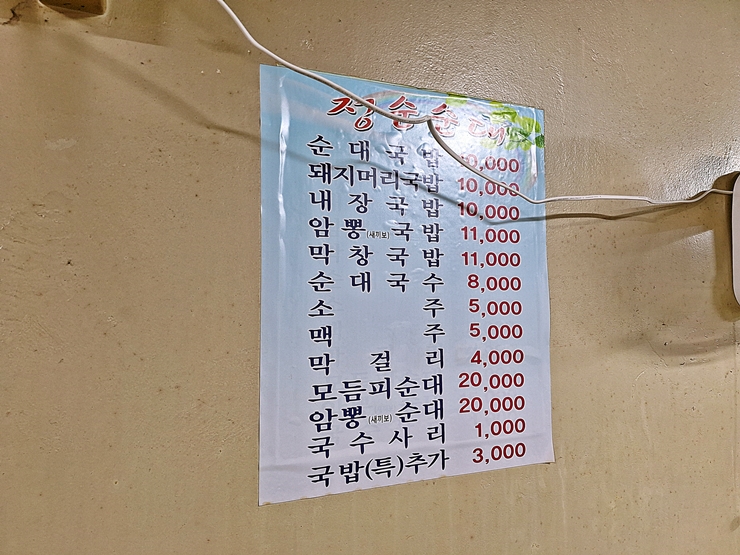 정순순대
순대국밥 10,000
돼지머리국밥 10,000
내장국밥 10,000
암뽕(새끼보)국밥 11,000
막창국밥 11,000
순대국수 8,000
소주 5,000
맥주 5,000
막걸리 4,000
모듬피순대 20,000
암뽕(새끼보)순대 20,000
국수사리 1,000
국밥(특)추가 3,000